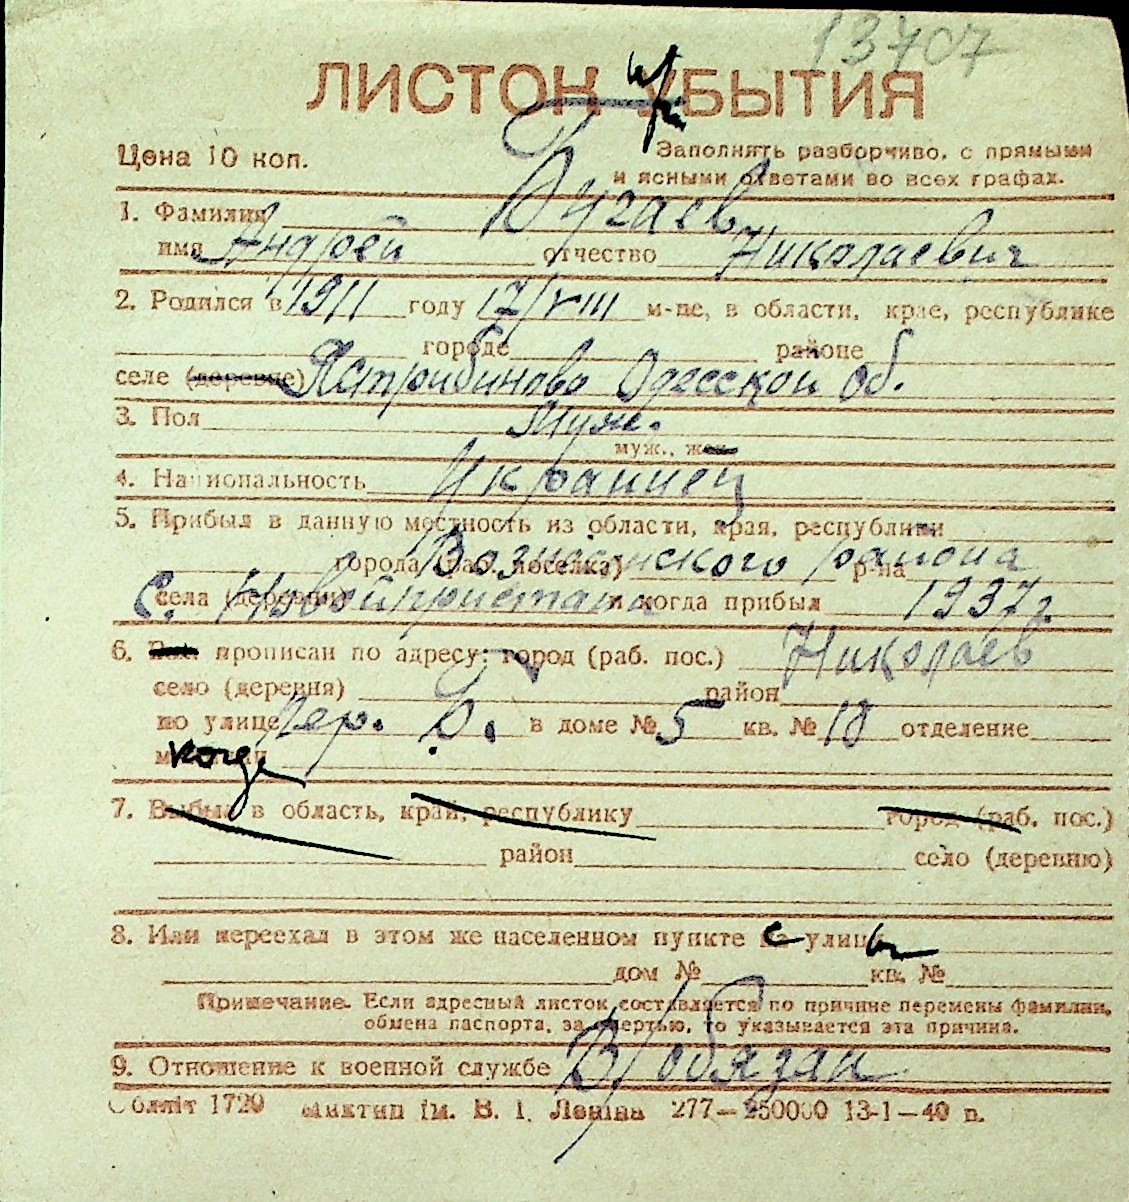 13707
ЛИСТОК УБЫТИЯ
Цена 10 коп.
Заполнять разборчиво, с прямыми
и ясными ответами во всех графах.
1. Фамилия Бугаев
имя Андрей отчество Николаевич
2. Родился в 1911 году 17/VIII м-це, в области, крае, республике
городе районе
селе (деревне) Ястрибиново Одесской об.
3. Пол Муж.
муж., жен.
4. Национальность Украинец
5. Прибыл в данную местность из области, края, республики
города (раб. поселка) Вознесенского района р-на
села (деревни) с. Новой пристани и когда прибыл 1937 г.
6. прописан по адресу: город (раб. пос.) Николаев
село (деревня) район
по улице Пер. Б. в доме № 5 кв. № 10 отделение
когда
7. Выбыл в область, край, республику город (раб. пос.)
район село (деревню)
8. Или переехал в этом же населенном пункте с улицы
дом № кв. №
Примечание. Если адресный листок составляется по причине перемены фамилии,
обмена паспорта, за смертью, то указывается эта причина.
9. Отношение к военной службе В/обязан
Обліт 1720 Миктип ім. В. І. Леніна 277—250000 13-1—40 р.